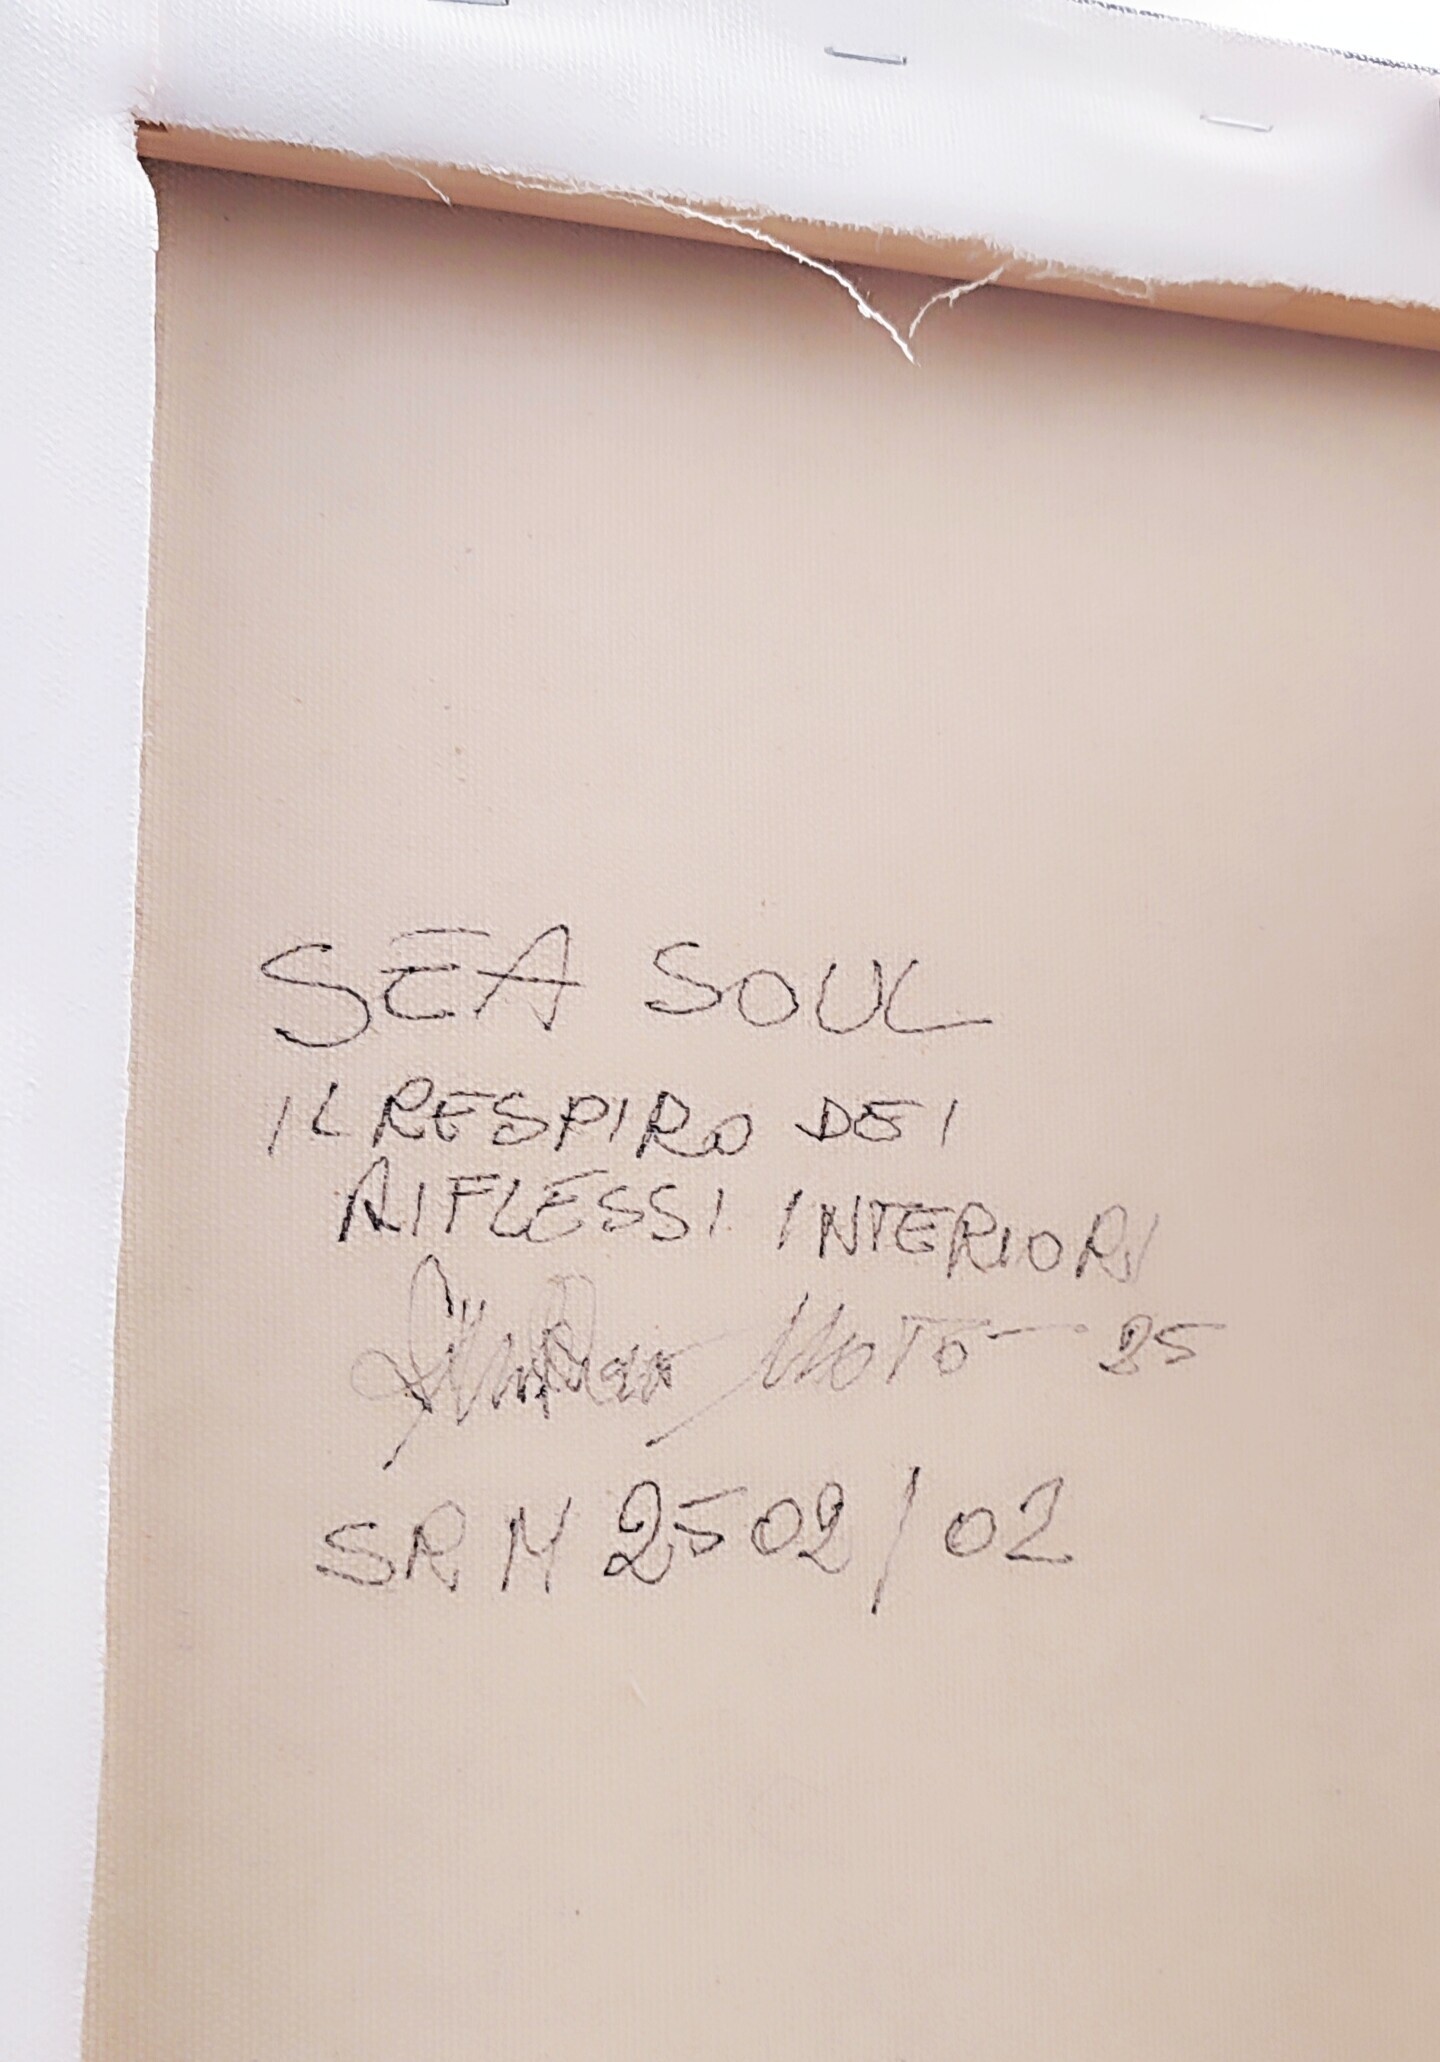 SEA SOUL
IL RESPIRO DEI
RIFLESSI INTERIORI
MOTO 25
SRM 2502/02